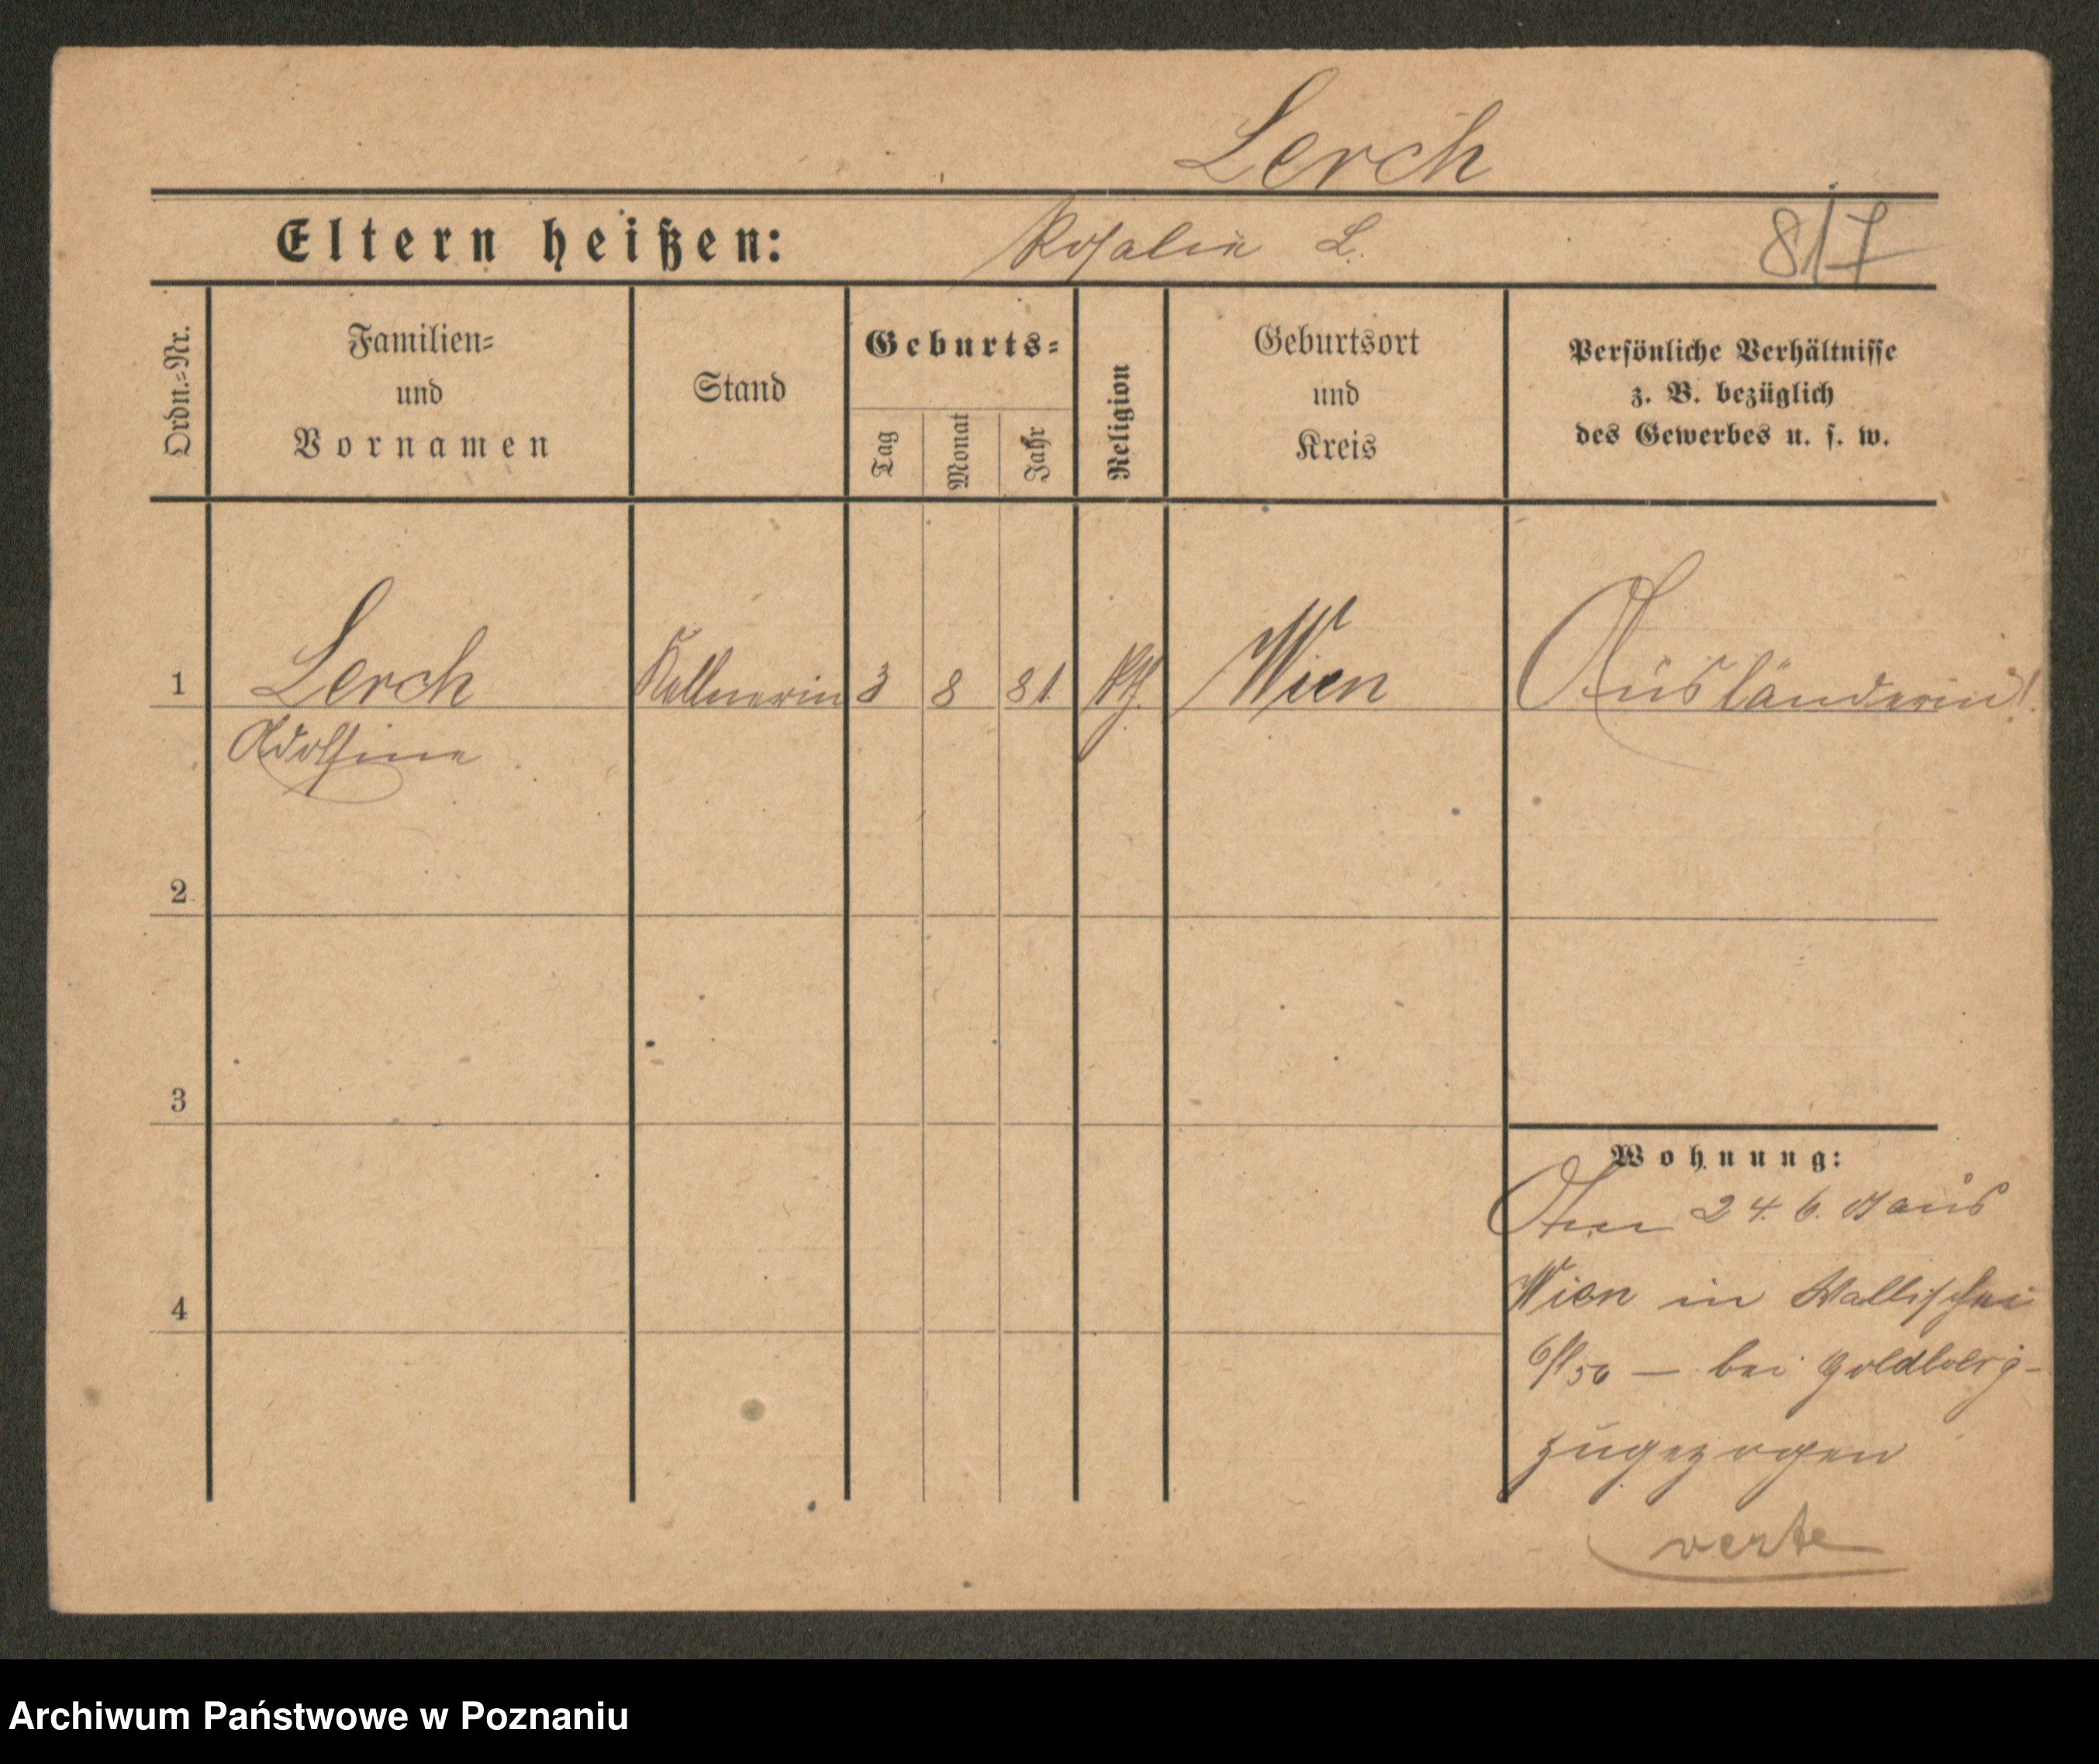 Lerch
Eltern heißen: Rosalie L. 8/7
Ordn.=Nr.
Familien=
und
Vornamen
Stand
Geburts=
Tag
Monat
Jahr
Religion
Geburtsort
und
Kreis
Persönliche Verhältnisse
z. B. bezüglich
des Gewerbes u. s. w.
1 Lerch Kellnerin 3 8 81 Wien Ausländerin!
Adolfine
2
3
4
Wohnung:
24. 6. aus
Wien in Wallischei
bei Goldberg-
zugezogen
verte
Archiwum Państwowe w Poznaniu